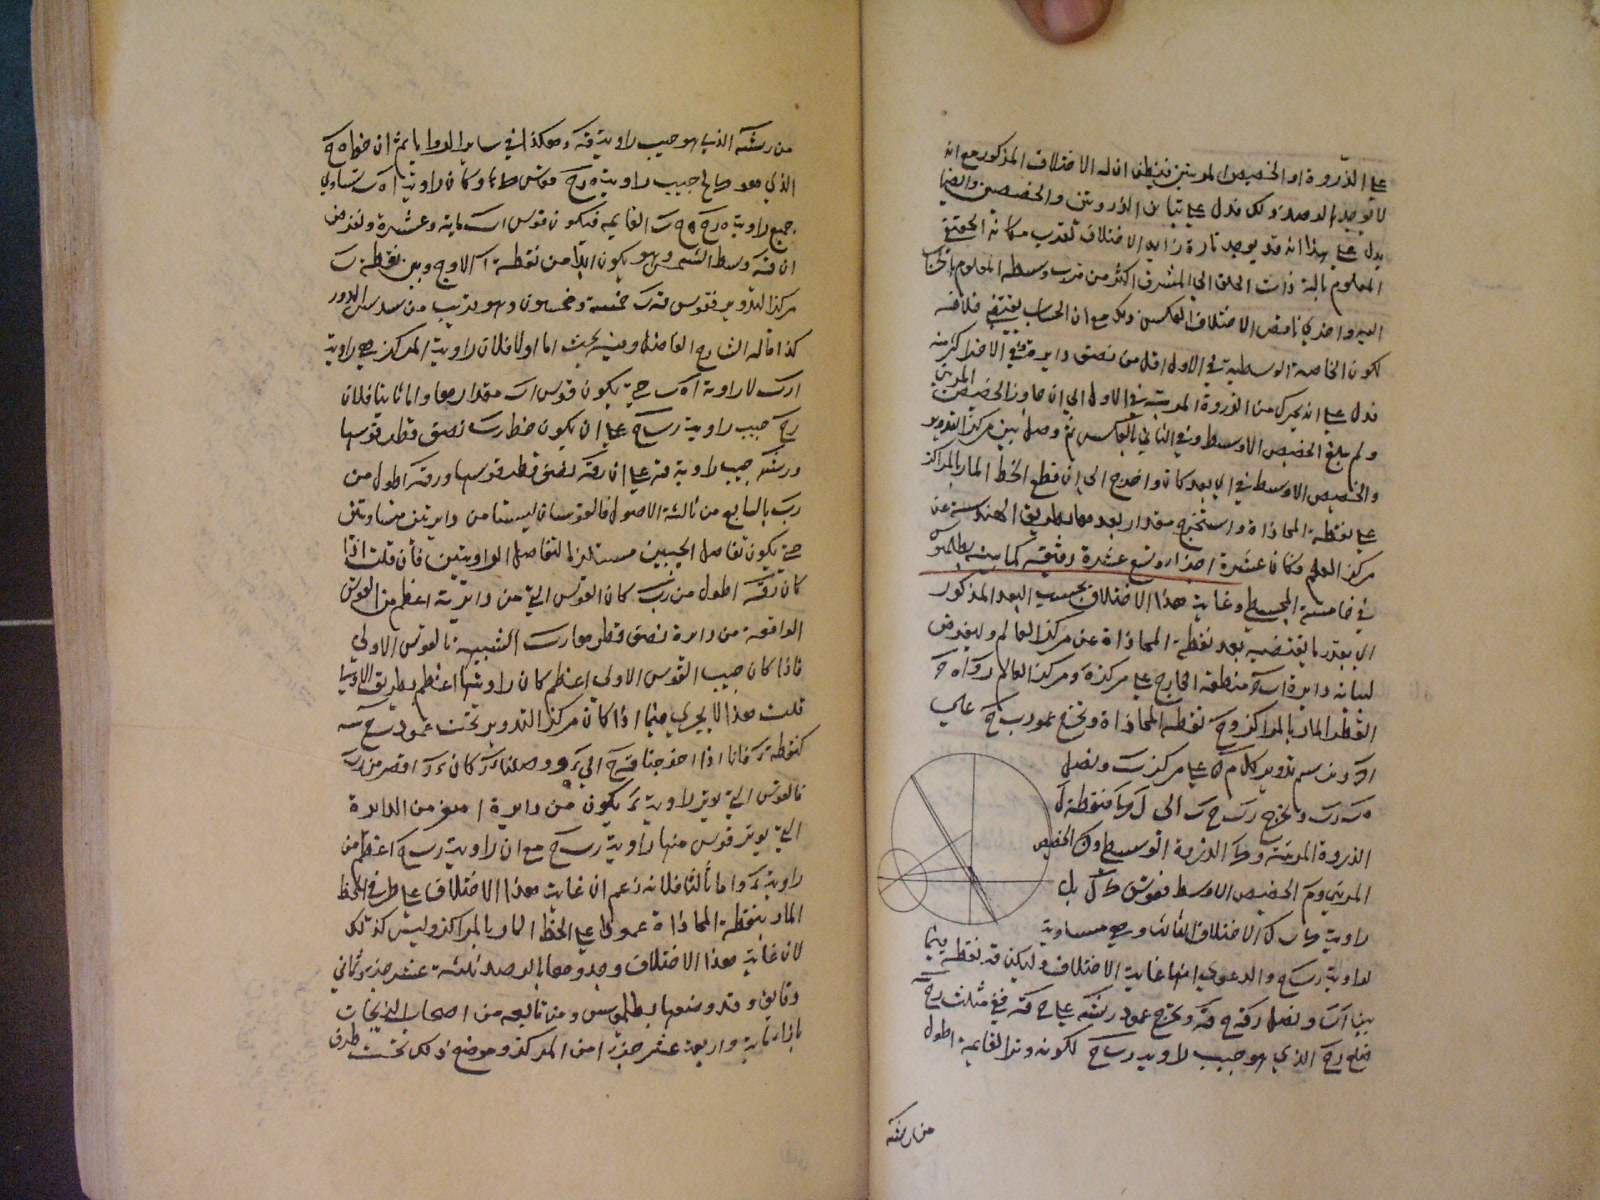 على الذروة او الحضيض المرئيين فيظن ان له الاختلاف المذكور مع انه
لا يوجد بالرصد ذلك فدل على تباين الذروتين والحضيضين وايضا
يدل على هذا انه قد يوجد تارة زايد الاختلاف لقرب مكانه الحقيقي
المعلوم بالة ذات الحلق الى المشرق اكثر من قرب وسطه المعلوم بالحساب
اليه واخرى ناقص الاختلاف بالعكس وذلك مع ان الحساب يقتضى خلافه
لكون الخاصة الوسطية في الاول اقل من نصف دايرة وفي الاخر اكثر منه
فدل على انه تحرك من الذروة المرئية في الاول الى ان جاوز الحضيض المرئي
ولم يبلغ الحضيض الاوسط وفي الثاني بالعكس ثم وصل بين مركز التدوير
والحضيض الاوسط في اي بعد كان واخرج الى ان قطع الخط المار بالمراكز
على نقطة المحاذاة واستخرج مقدار بعدها بطريق الهندسة عن
مركز العالم وكان عشرة اجزاء وتسع عشرة دقيقة كما بينه بطلميوس
في خامسة المجسطي وغاية هذا الاختلاف بحسب البعد المذكور
اي بقدر ما يقتضيه بعد نقطة المحاذاة عن مركز العالم وليفرض
لبيانه دايرة اب ج منطقة الخارج على مركز ه ومركز العالم ر واه ح
القطر المار بالمراكز وح نقطة المحاذاة ونخرج عمود ب ح على
ا ج ونرسم تدوير كل م ط على مركز ب ونصل
ه ب ر ب ونخرج ر ب ح ب الى ل م ط ك فنقطة ل
الذروة المرئية وط الذروة الوسطى وك الحضيض
المرئي وم الحضيض الاوسط فقوس ط ل بل
زاوية ط ب ل الاختلاف الثالث وهي مساوية
لزاوية ر ب ح والدعوى انها غاية الاختلاف وليكن ف نقطة فيما
بين اب ونصل ر ف ح ف ونخرج عمود ر ش على ح ف ففي مثلث ر ش ح
ضلع ر ح الذي هو جيب زاوية ر ب ح لكونه وتر القايمة اطول
من ر ش
من ر ش الذي هو جيب زاوية ف وهكذا في ساير الزوايا ثم ان خط ه ح
الذي معه صالح جيب زاوية ه ر ح قوس ط ما وكان زاوية ا ه ب تساوي
جميع زاوية ه ر ح ه ح ب القايمة فيكون قوس اب ماية وعشرة ولنفرض
ان ف وسط الشمس وهو يكون ابدا من نقطة ا الاوج وبين نقطة ب
مركز التدوير فقوس ف ب خمسة وخمسون وهو قريب من سدس الدور
كذا قاله الشارح الفاضل وفيه بحث اما اولا فلان زاوية المركز هي زاوية
ا ر ب لا زاوية ا ه ب حتى يكون قوس اب مقدارها واما ثانيا فلان
ر ح جيب زاوية ر ب ح على ان يكون خط ر ب نصف قطر قوسها
ور ش جيب زاوية ف على ان ر ف نصف قطر قوسها ور ف اطول من
ر ب بالسابع من ثالثة الاصول فالقوسان ليستا من دايرتين متساويتين
حتى يكون تفاضل الجيبين مستلزما لتفاضل الزاويتين فان قلت اذا
كان ر ف اطول من ر ب كان القوس التي من دايرته اعظم من القوس
الواقعة من دايرة نصف قطرها ر ب الشبيهة بالقوس الاولى
فاذا كان جيب القوس الاولى اعظم كان زاويتها اعظم بطريق الاولى
قلت هذا لا يجري فيما اذا كان مركز التدوير تحت عمود ح ب
كنقطة ء فانا اذا اخرجنا ف ح الى ء ووصلنا ء ر كان ء ر اقصر من ر ب
فالقوس التي يوتر زاوية ء يكون من دايرة اصغر من الدايرة
التي يوتر قوس منها زاوية ر ب ح مع ان زاوية ر ب ح اعظم من
زاوية ء واما ثالثا فلانه زعم ان غاية هذا الاختلاف على طرفي الخط
المار بنقطة المحاذاة عمودا على الخط المار بالمراكز وليس كذلك
لان غاية هذا الاختلاف وجدوها بالرصد ثلثة عشر جزء وثماني
دقايق وقد وضعها بطلميوس ومن تابعه من اصحاب الزيجات
بازاء ماية واربعة عشر جزء من المركز وموضع ذلك تحت طرف